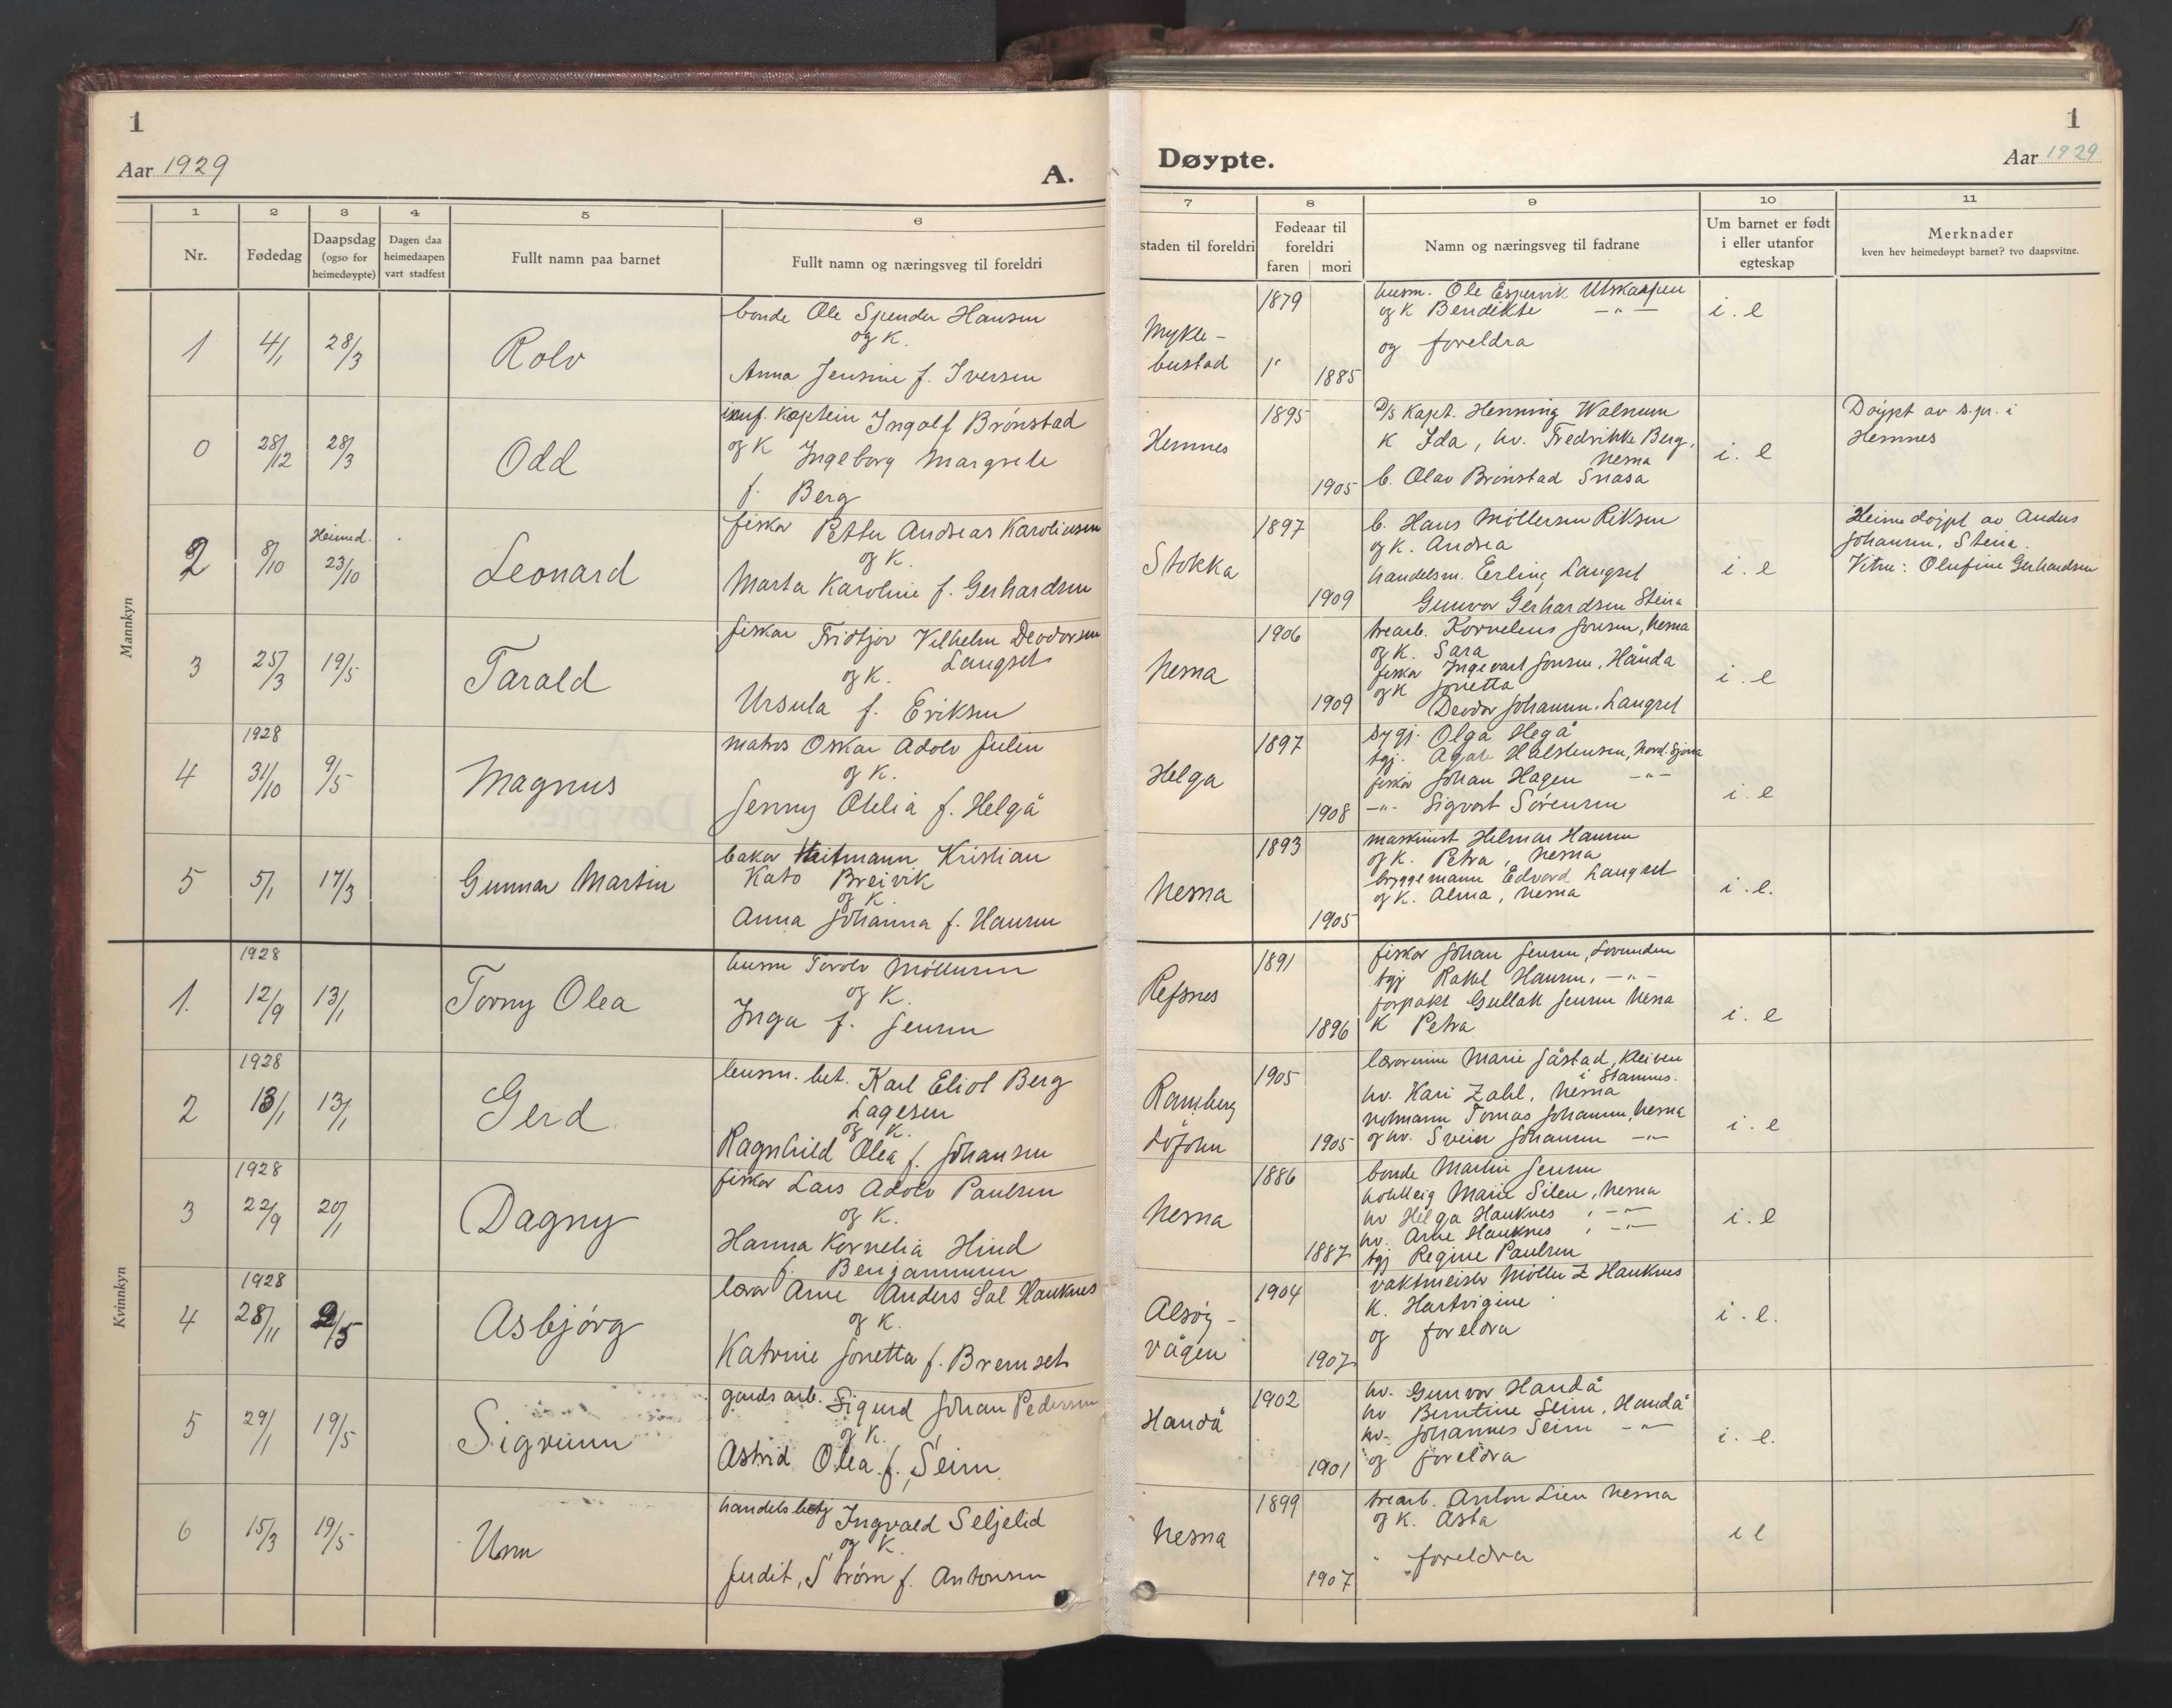 1
Aar 1929
A.
Døypte.
1
Aar 1929
1 2 3 4 5 6 7 8 9 10 11
Nr.
Fødedag
Daapsdag
(ogso for
heimedøypte)
Dagen daa
heimedaapen
vart stadfest
Fullt namn paa barnet
Fullt namn og næringsveg til foreldri
staden til foreldri
Fødeaar til
foreldri
faren mori
Namn og næringsveg til fadrane
Um barnet er født
i eller utanfor
egteskap
Merknader
kven hev heimedøypt barnet? tvo daapsvitne.
Mannkyn
1 4/1 28/3 Rolv
bonde Ole Spender Hansen
og K.
Anna Jensine f. Iversen
Mykle-
bustad
1879
1885
husm. Ole Espervik Utskarpen
og K Bendikte — " —
og foreldra
i. e
0 28/12 28/3 Odd
kaptein Ingolf Brønstad
og K Ingeborg Margrete
f. Berg
Hemnes
1895
1905
D/s Kapt. Henning Walnum
K Ida, hv. Fredrikke Berg,
Nesna
b. Olav Brønstad Snåsa
i. e
Døypt av s.pr. i
Hemnes
2 8/10 Heimed. 23/10 Leonard
fisker Petter Andreas Karoliussen
og K.
Marta Karoline f. Gerhardsen
Stokka
1897
1909
b. Hans Møllersen Riksen
og K. Andrea
handelsm. Erling Langset
Gunvor Gerhardsen Steira
i. e
Heimedøypt av Anders
Johansen, Steira.
Vitne: Olufine Gerhardsen
3 25/3 19/5 Tarald
fiskar Fridtjov Vilhelm Deodorsen
Langset
og K.
Ursula f. Eriksen
Nesna
1906
1909
trearb. Kornelius Jonsen, Nesna
og K. Sara
fisker Ingevart Jonsen, Handa
og K Jonetta
Deodor Johansen, Langset
i. e
4 1928 31/10 9/5 Magnus
matros Oskar Adolv Julin
og K.
Jenny Otelia f. Helgå
Helga
1897
1908
sygj. Olga Hegå
tgj. Agate Halstensen, Nord-Sjona
fisker Johan Hagen — " —
— " — Sigvart Sørensen
i. e
5 5/1 17/3 Gunnar Martin
baker Heitmann Kristian
Kato Breivik
og K.
Anna Johanna f. Hansen
Nesna
1893
1905
maskinist Helmar Hansen
og K. Petra, Nesna
bryggemann Edvard Langset
og K. Alma, Nesna
i. e.
Kvinnkyn
1. 1928 12/9 13/1 Torny Olea
husm Torolv Møllersen
og K.
Inga f. Jensen
Refsnes
1891
1896
fisker Johan Jensen, Lovunden
tgj Rakel Hansen, — " —
forpakt Gullak Jensen Nesna
K Petra
i. e
2 1928 13/1 13/1 Gerd
husm. bet. Karl Eliot Berg
Lagesen
og K.
Ragnhild Olea f. Johansen
Ramberg
1905
1905
lærarinne Marie Jåstad, Kleiven
i Stamnes.
hv. Kari Zahl, Nesna
Tomas Johansen, Nesna
og hv. Svein Johansen — " —
i. e
3 1928 22/9 20/1 Dagny
fisker Lars Adolv Paulsen
og K.
Hanna Kornelia Hind
f. Benjaminsen
Nesna
1886
1887
bonde Martin Jensen
Marie Silen, Nesna
hv Helga Hauknes, — " —
hv. Arne Hauknes, — " —
tgj Regine Paulsen
i. e
4 1928 28/11 9/5 Asbjørg
lærar Arne Anders Sal Hauknes
og K.
Katrine Jonetta f. Bremset
Alsøy-
vågen
1904
1907
vaktmeister Møller Z Hauknes
K. Hartvigine
og foreldra
i. e.
5 29/1 19/5 Sigrunn
gards arb. Sigurd Johan Pedersen
og K.
Astrid Olea f. Seim
Handå
1902
1901
hv. Gunvor Handå
hv Berntine Seim, Handå
hv. Johannes Seim — " —
og foreldra
i. e.
6 15/3 19/5 Unn
handelsbetj Ingvald Seljelid
og K.
Judit, Strøm f. Antonsen
Nesna
1899
1907
trearb. Anton Lien Nesna
og K. Asta
" foreldra
i e